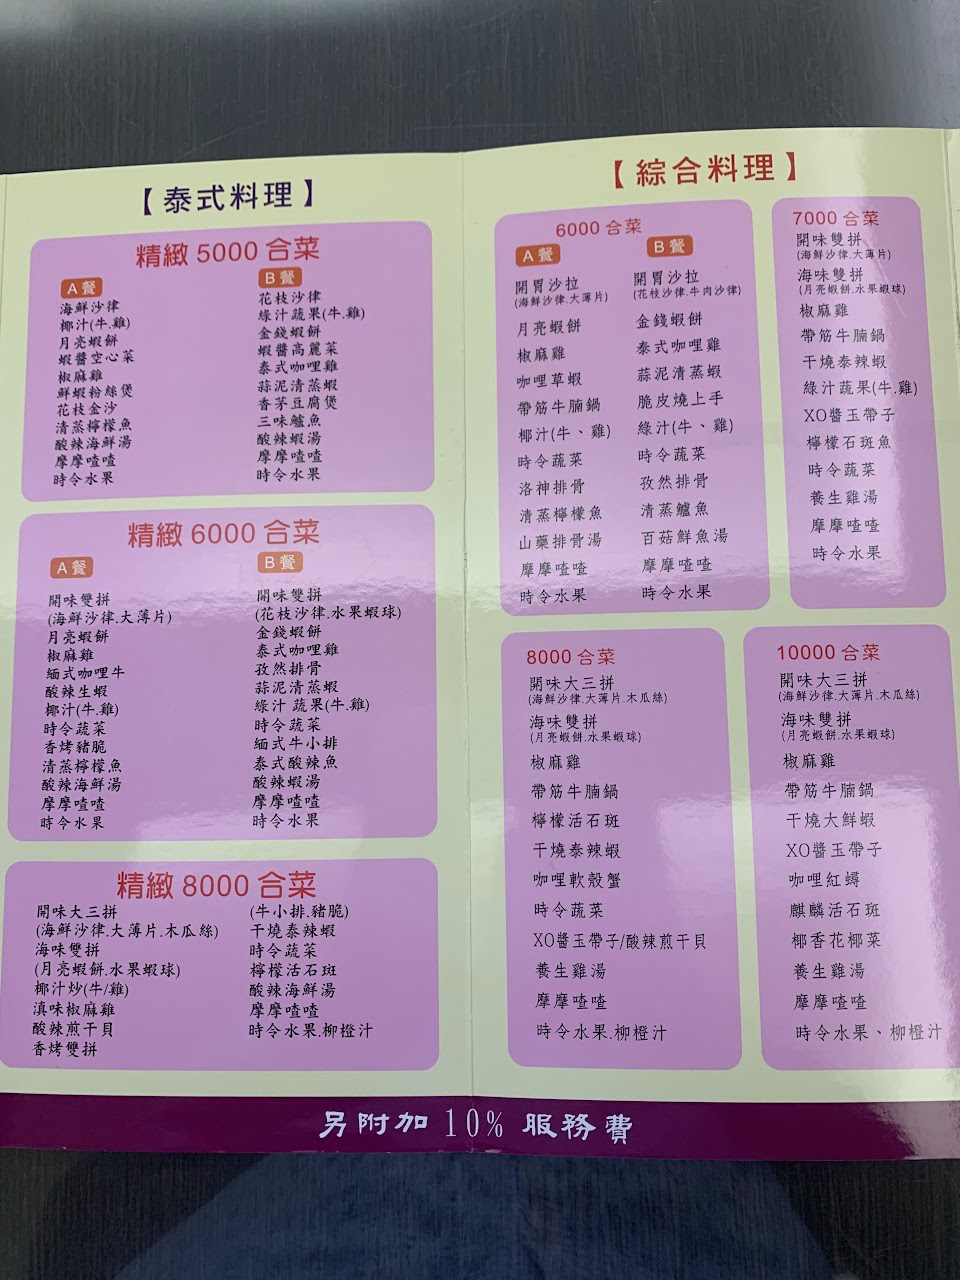 【泰式料理】
精緻 5000 合菜
A餐
海鮮沙律
椰汁(牛.雞)
月亮蝦餅
蝦醬空心菜
椒麻雞
鮮蝦粉絲煲
花枝金沙
清蒸檸檬魚
酸辣海鮮湯
摩摩喳喳
時令水果
B餐
花枝沙律
綠汁蔬果(牛.雞)
金錢蝦餅
蝦醬高麗菜
泰式咖哩雞
蒜泥清蒸蝦
香茅豆腐煲
三味鱸魚
酸辣蝦湯
摩摩喳喳
時令水果
精緻 6000 合菜
A餐
開味雙拼
(海鮮沙律.大薄片)
月亮蝦餅
椒麻雞
緬式咖哩牛
酸辣生蝦
椰汁(牛.雞)
時令蔬菜
香烤豬脆
清蒸檸檬魚
酸辣海鮮湯
摩摩喳喳
時令水果
B餐
開味雙拼
(花枝沙律.水果蝦球)
金錢蝦餅
泰式咖哩雞
孜然排骨
蒜泥清蒸蝦
綠汁 蔬果(牛.雞)
時令蔬菜
緬式牛小排
泰式酸辣魚
酸辣蝦湯
摩摩喳喳
時令水果
精緻 8000 合菜
開味大三拼
(海鮮沙律.大薄片.木瓜絲)
海味雙拼
(月亮蝦餅.水果蝦球)
椰汁炒(牛/雞)
滇味椒麻雞
酸辣煎干貝
香烤雙拼
(牛小排.豬脆)
干燒泰辣蝦
時令蔬菜
檸檬活石斑
酸辣海鮮湯
摩摩喳喳
時令水果.柳橙汁
【綜合料理】
6000 合菜
A餐
開胃沙拉
(海鮮沙律.大薄片)
月亮蝦餅
椒麻雞
咖哩草蝦
帶筋牛腩鍋
椰汁(牛、雞)
時令蔬菜
洛神排骨
清蒸檸檬魚
山藥排骨湯
摩摩喳喳
時令水果
B餐
開胃沙拉
(花枝沙律.牛肉沙律)
金錢蝦餅
泰式咖哩雞
蒜泥清蒸蝦
脆皮燒上手
綠汁(牛、雞)
時令蔬菜
孜然排骨
清蒸鱸魚
百菇鮮魚湯
摩摩喳喳
時令水果
7000 合菜
開味雙拼
(海鮮沙律.大薄片)
海味雙拼
(月亮蝦餅.水果蝦球)
椒麻雞
帶筋牛腩鍋
干燒泰辣蝦
綠汁蔬果(牛.雞)
XO醬玉帶子
檸檬石斑魚
時令蔬菜
養生雞湯
摩摩喳喳
時令水果
8000 合菜
開味大三拼
(海鮮沙律.大薄片.木瓜絲)
海味雙拼
(月亮蝦餅.水果蝦球)
椒麻雞
帶筋牛腩鍋
檸檬活石斑
干燒泰辣蝦
咖哩軟殼蟹
時令蔬菜
XO醬玉帶子/酸辣煎干貝
養生雞湯
摩摩喳喳
時令水果.柳橙汁
10000 合菜
開味大三拼
(海鮮沙律.大薄片.木瓜絲)
海味雙拼
(月亮蝦餅.水果蝦球)
椒麻雞
帶筋牛腩鍋
干燒大鮮蝦
XO醬玉帶子
咖哩紅蟳
麒麟活石斑
椰香花椰菜
養生雞湯
摩摩喳喳
時令水果、柳橙汁
另附加 10% 服務費